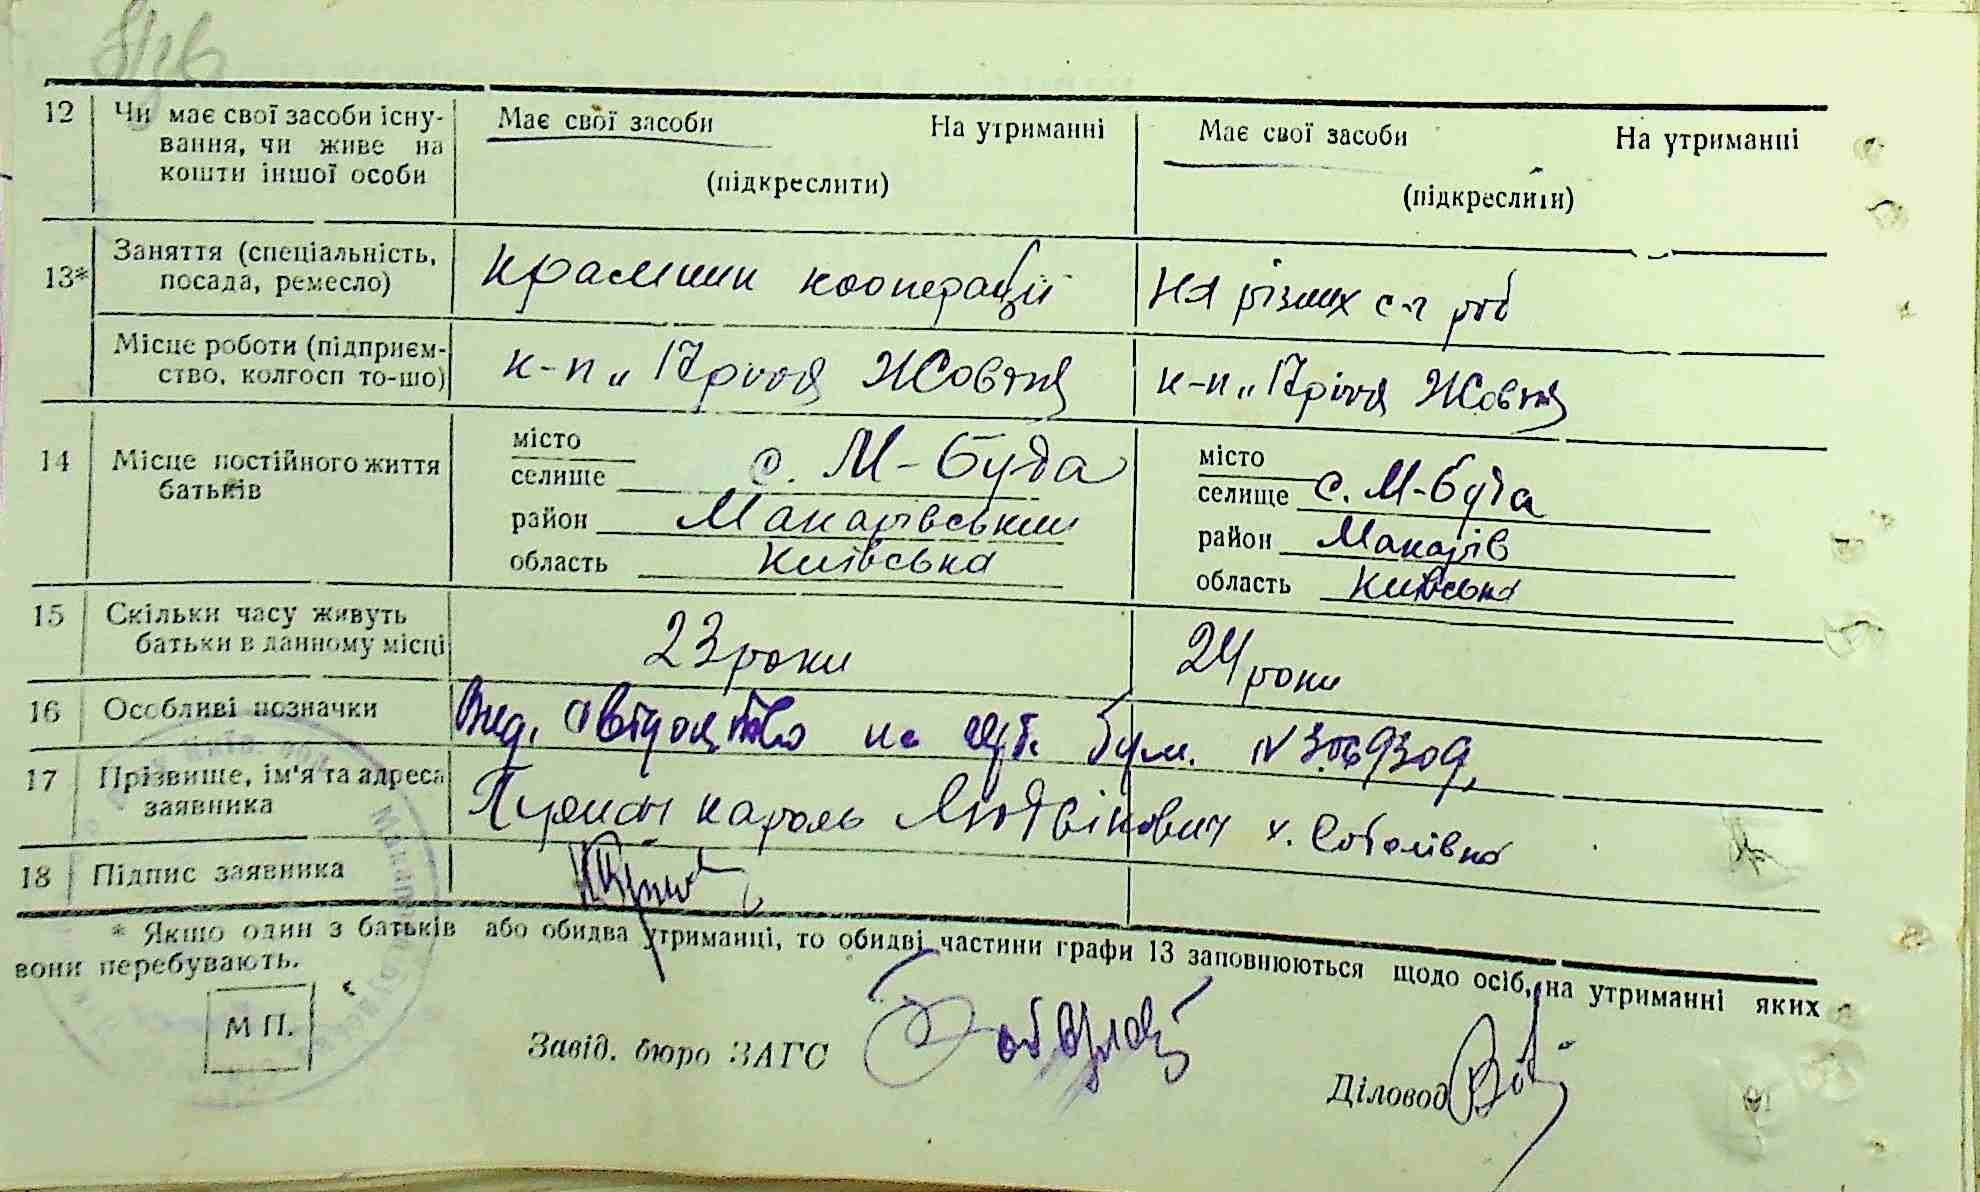 12 Чи має свої засоби існу- Має свої засоби На утриманні Має свої засоби На утриманні
вання, чи живе на
кошти іншої особи (підкреслити) (підкреслити)
13* Заняття (спеціальність, крамник кооперації на різних с-г роб
посада, ремесло)
Місце роботи (підприєм- к-п „17 річчя Жовтня к-п „17 річчя Жовтня
ство, колгосп то-що)
14 Місце постійного життя місто місто
батьків селище с. М-Буда селище с. М-буда
район Макарівський район Макарів
область Київська область Київська
15 Скільки часу живуть 23 роки 24 роки
батьки в данному місці
16 Особливі позначки Вид. свідоцтво на бум. N
17 Прізвище, ім'я та адреса Кароль Людвікович х. Соболівка
заявника
18 Підпис заявника
* Якщо один з батьків або обидва утриманці, то обидві частини графи 13 заповнюються щодо осіб, на утриманні яких
вони перебувають.
М П.
Завід. бюро ЗАГС
Діловод